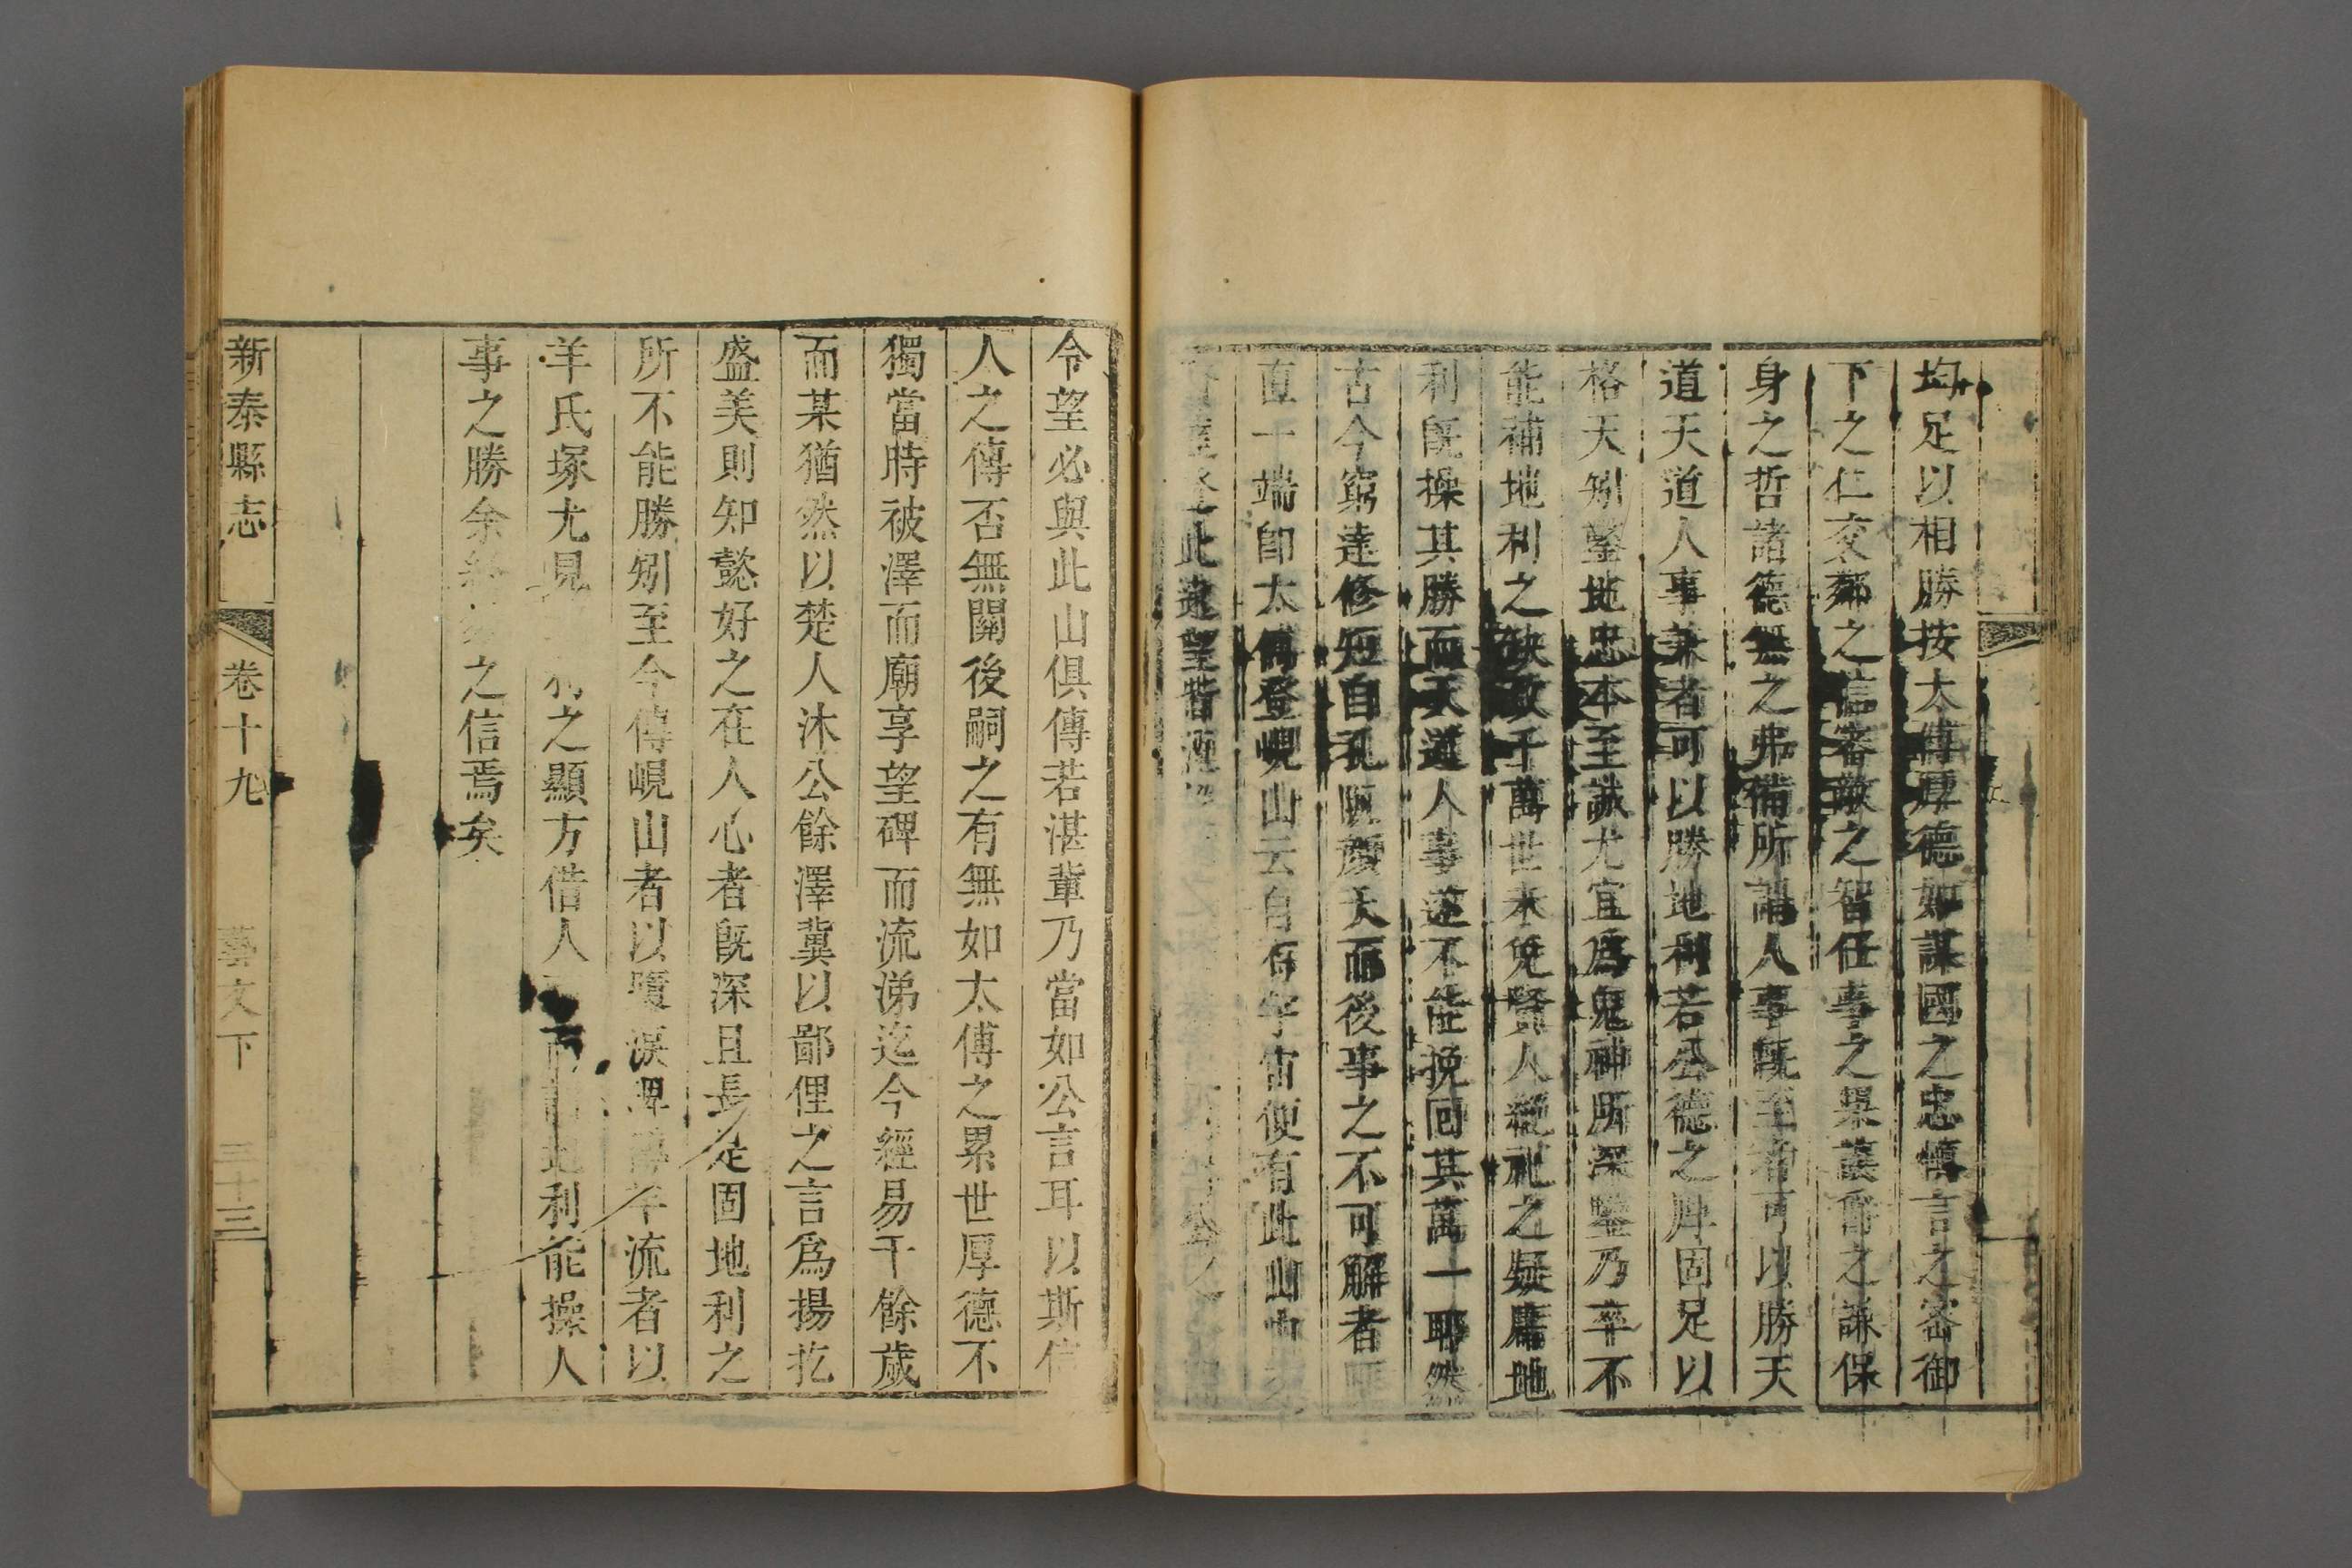 均足以相勝按太傅厚德如謀國之忠慎言之密御
下之仁交鄰之信審敵之智任事之果蓋爵之謙保
身之哲諸德無之弗備所謂人事既至者可以勝天
道天道人事兼者可以勝地利若公德之厚固足以
格天矧鑿地忠本至誠尤宜為鬼神所深鑒乃卒不
能補地利之缺致千萬世未免賢人絕祀之疑庸地
利既操其勝而天道人事遂不能挽回其萬一耶然
古今窮達修短自孔陋顏夭而後事之不可解者
直一端即太傅登峴山云自有宇宙便有此山由來
此遠望昔
令望必與此山俱傳若湛輩乃當如公言耳以斯信
人之傳否無關後嗣之有無如太傅之累世厚德不
獨當時被澤而廟享望碑而流涕迄今經易千餘歲
而某猶然以楚人沐公餘澤冀以鄙俚之言為揚扢
盛美則知懿好之在人心者既深且長足固地利之
所不能勝矧至今傳峴山者以墮淚碑傳羊流者以
羊氏塚尤見利之顯方借人而地利能操人
事之勝余之信焉矣
新泰縣志 卷十九 藝文下 三十三